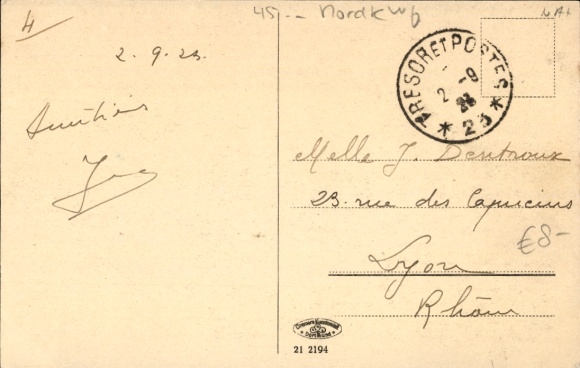 4
45,-- Nordkwf
2.9.23.
Amitiés
TRESOR ET POSTES
2 -9
23
* 23 *
Melle J. Dentroux
23. rue des Capucins
Lyon
Rhône
€8-
21 2194